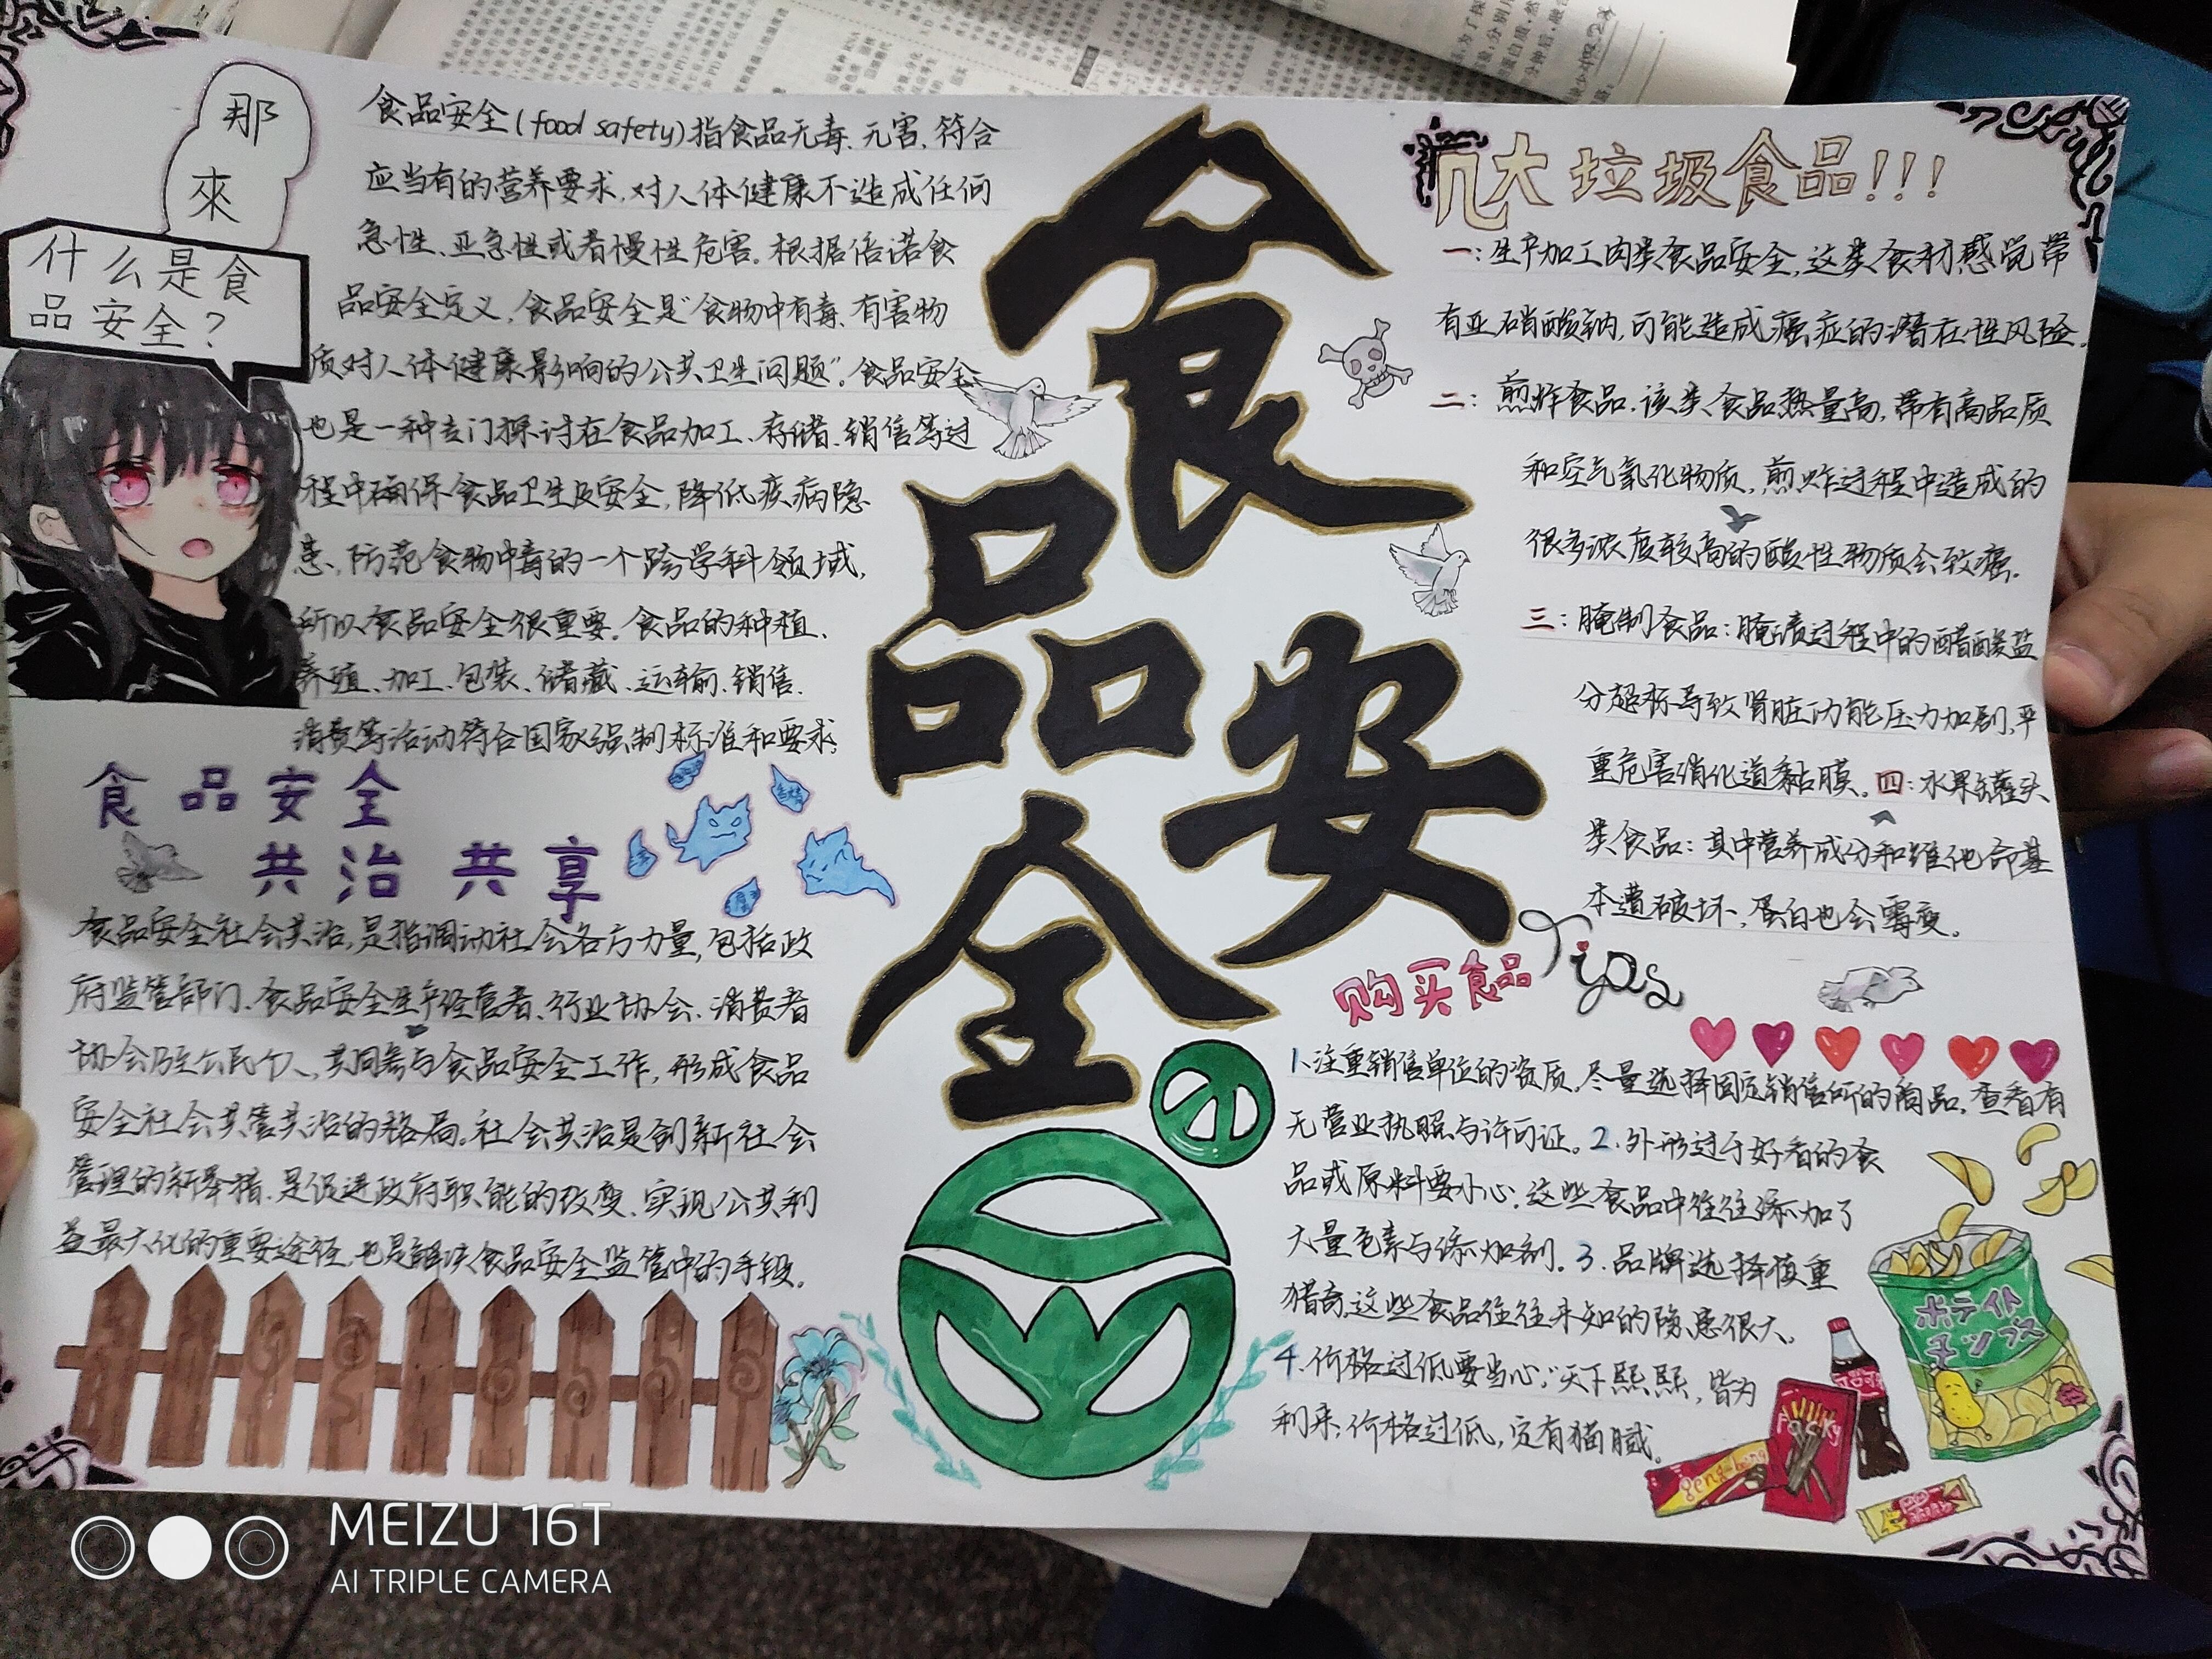 那
來
什么是食
品安全？
食品安全(food safety)指食品无毒、无害、符合
应当有的营养要求,对人体健康不造成任何
急性、亚急性或者慢性危害。根据倍诺食
品安全定义,食品安全是“食物中有毒、有害物
质对人体健康影响的公共卫生问题”。食品安全
也是一种专门探讨在食品加工、存储、销售等过
程中确保食品卫生及安全,降低疾病隐
患,防范食物中毒的一个跨学科领域,
所以食品安全很重要。食品的种植、
养殖、加工、包装、储藏、运输、销售、
消费等活动符合国家强制标准和要求;
食品安全
共治 共享
食品安全社会共治,是指调动社会各方力量,包括政
府监管部门、食品安全生产经营者、行业协会、消费者
协会乃至公民个人,共同参与食品安全工作,形成食品
安全社会共管共治的格局。社会共治是创新社会
管理的新举措,是促进政府职能的改变、实现公共利
益最大化的重要途径,也是解决食品安全监管中的手段。
食
品
安
全
几大垃圾食品!!!
一:生产加工肉类食品安全,这类食材感觉带
有亚硝酸钠,可能造成癌症的潜在性风险。
二:煎炸食品,该类食品热量高,带有高品质
和空气氧化物质,煎炸过程中造成的
很多浓度较高的酸性物质会致癌。
三:腌制食品:腌渍过程中的醋酸盐
分超标导致肾脏功能压力加剧,平
重危害消化道黏膜。四:水果罐头
类食品:其中营养成分和维他命基
本遭破坏,蛋白也会霉变。
购买食品Tips
1.注重销售单位的资质,尽量选择固定销售所的商品,查看有
无营业执照与许可证。2.外形过于好看的食
品或原料要小心,这些食品中往往添加了
大量色素与添加剂。3.品牌选择慎重
猎奇,这些食品往往未知的隐患很大。
4.价格过低要当心,“天下熙熙,皆为
利来,价格过低,定有猫腻。
ポテイト
チップス
Pocky
MEIZU 16T
AI TRIPLE CAMERA